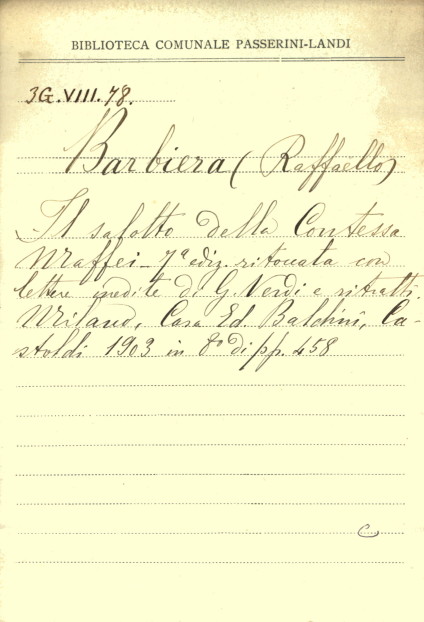 BIBLIOTECA COMUNALE PASSERINI-LANDI
3G.VIII.78.
Barbiera (Raffaello)
Il salotto della Contessa
Maffei_7ª ediz. ritoccata con
lettere inedite di G. Verdi e ritratti.
Milano, Casa Ed. Baldini, Ca-
stoldi 1903 in 8º di pp. 458
C